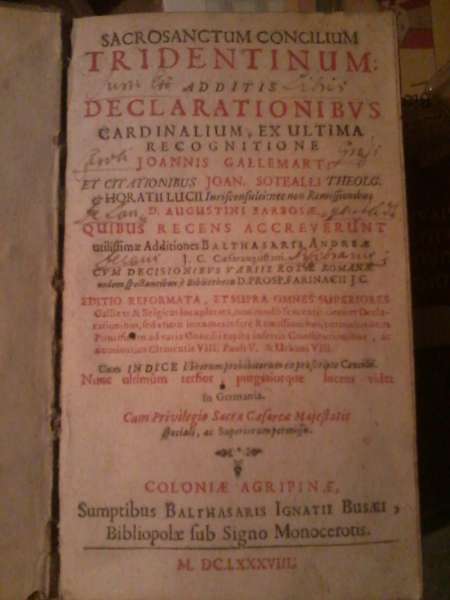 SACROSANCTUM CONCILIUM
TRIDENTINUM:
ADDITIS
DECLARATIONIBVS
CARDINALIUM, EX ULTIMA
RECOGNITIONE
JOANNIS GALLEMART;
ET CITATIONIBUS JOAN. SOTEALLI THEOLG.
& HORATII LUCII Jurisconsulti: nec non Remissionibus
D. AUGUSTINI BARBOSÆ,
QUIBUS RECENS ACCREVERUNT
utilissimæ Additiones BALTHASARIS ANDREÆ
J. C. Cæsaraugustani
CVM DECISIONIBVS VARIIS ROTÆ ROMANÆ
eodem spectantibus è Bibliotheca D. PROSP. FARINACII J.C.
EDITIO REFORMATA, ET SUPRA OMNES SUPERIORES
Gallicas & Belgicas
VIII. Pauli V. & Urbani VIII.
Cum INDICE librorum prohibitorum ex præscripto Concilii.
Nunc ultimum tersior, purgatiorque lucem videt
in Germania.
Cum Privilegio Sacræ Cæsareæ Majestatis
speciali, ac Superiorum permissu.
COLONIÆ AGRIPINÆ,
Sumptibus BALTHASARIS IGNATII BUSÆI,
Bibliopolæ sub Signo Monocerotis.
M. DC.LXXXVIII.